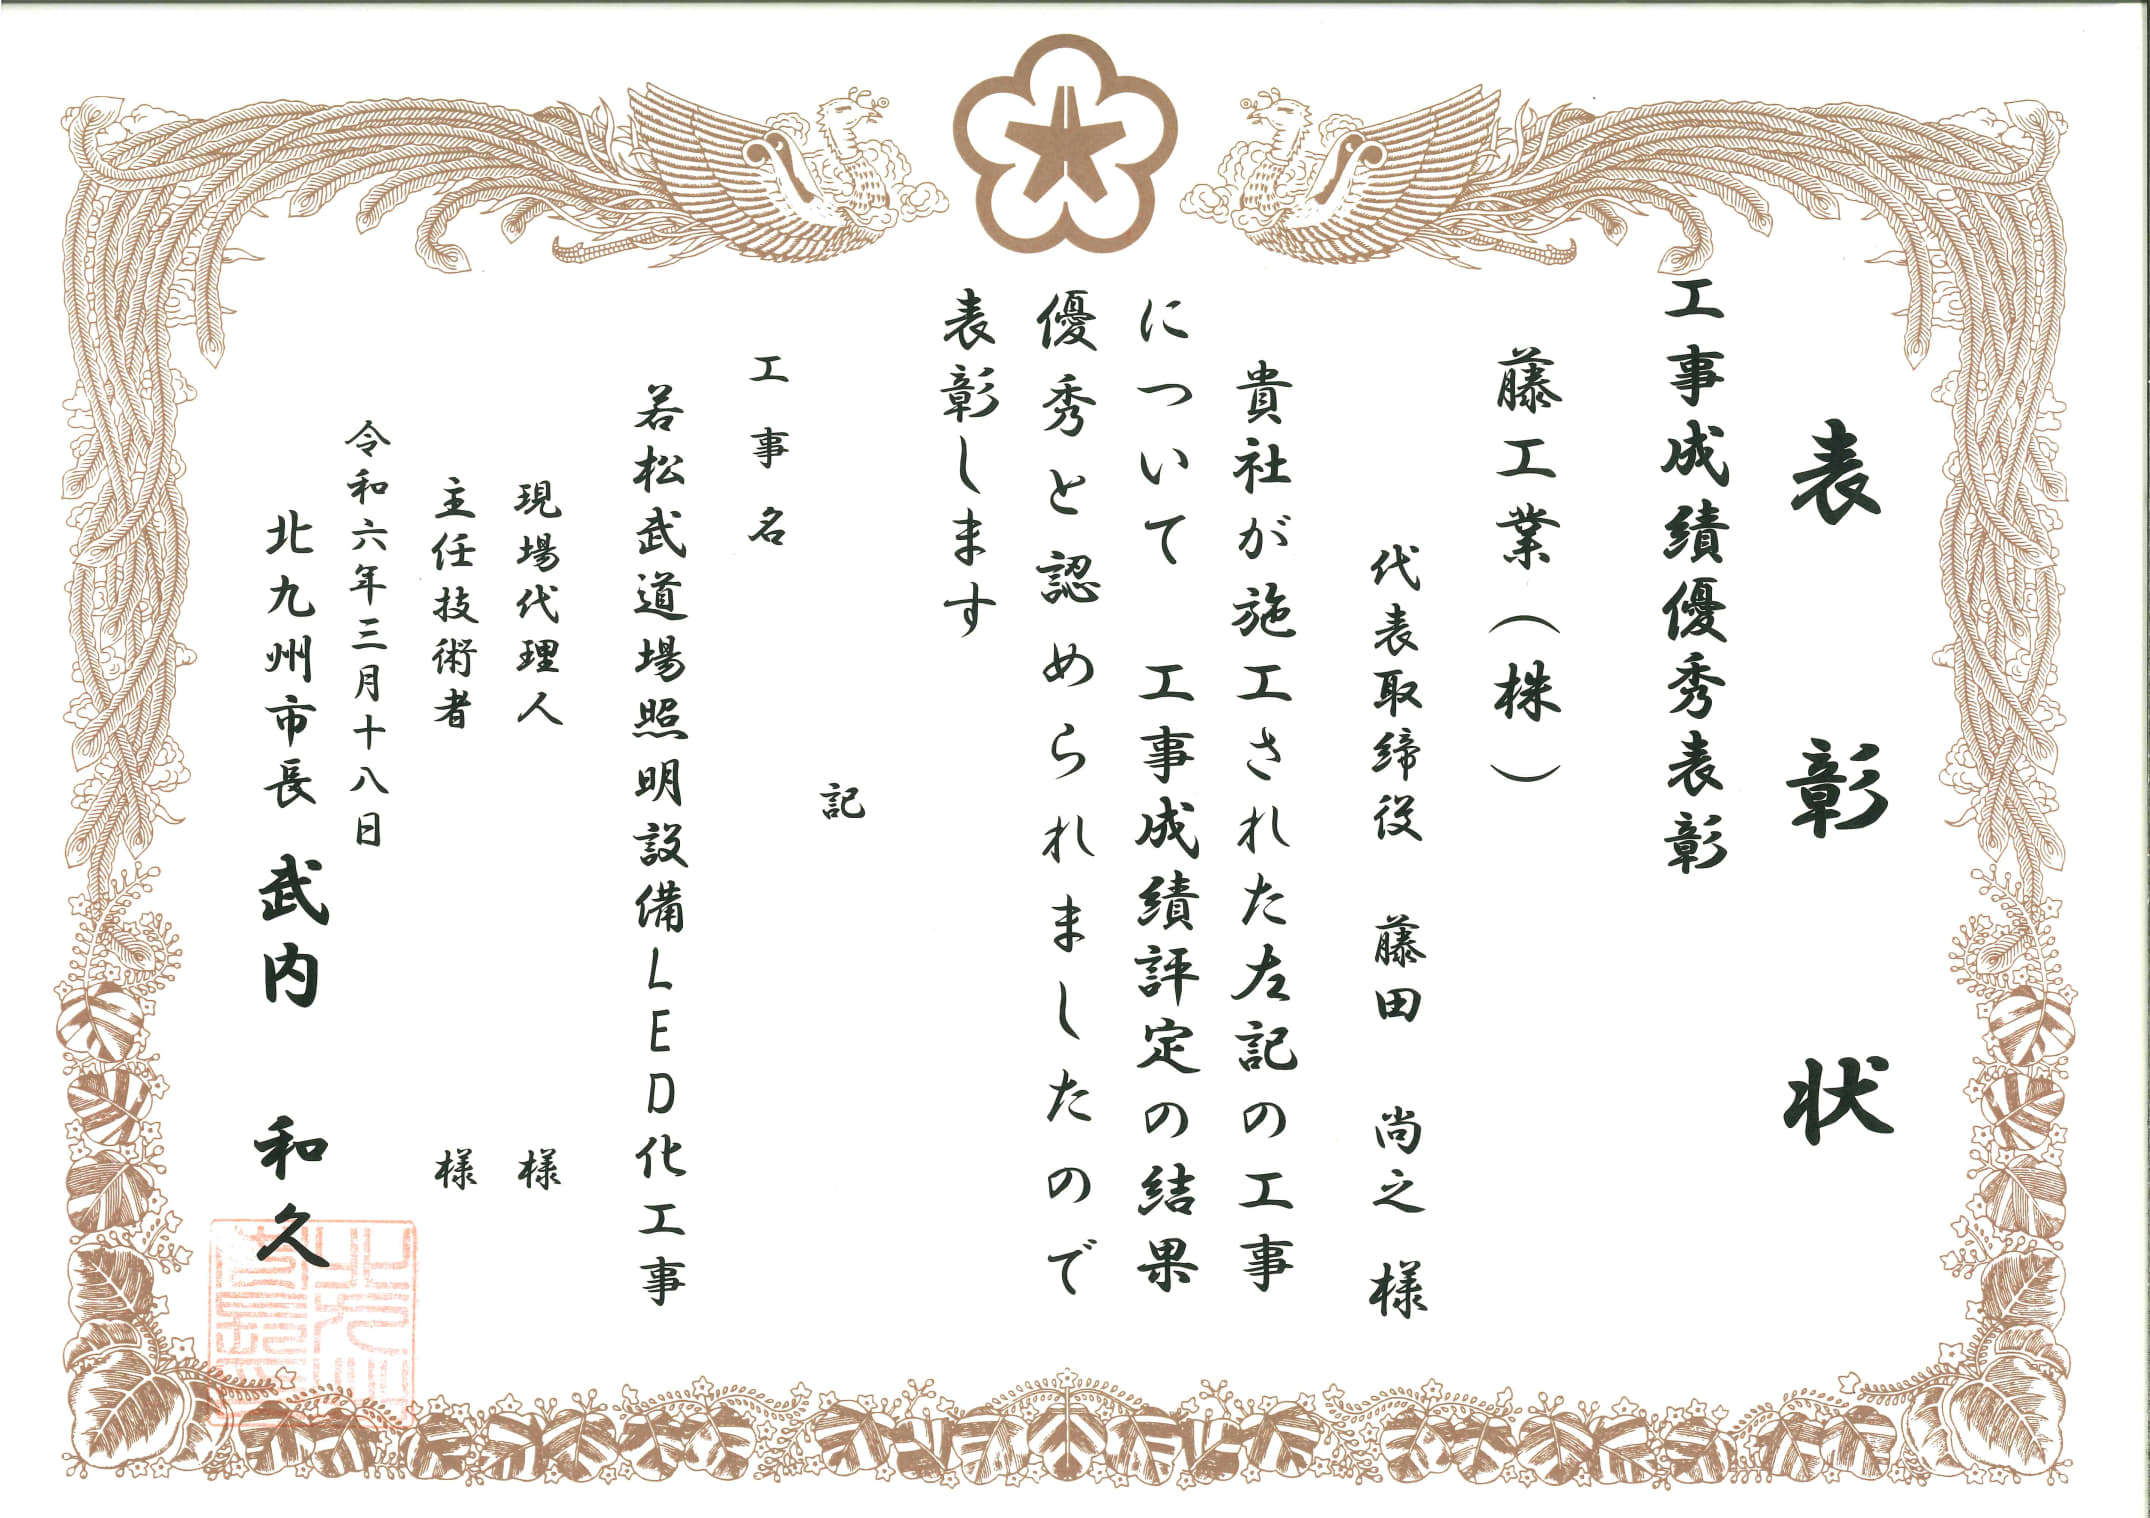 表彰状
工事成績優秀表彰
藤工業（株）
代表取締役 藤田 尚之 様
貴社が施工された左記の工事
について 工事成績評定の結果
優秀と認められましたので
表彰します
記
工事名
若松武道場照明設備LED化工事
現場代理人 様
主任技術者 様
令和六年三月十八日
北九州市長 武内 和久
北九州
市長印